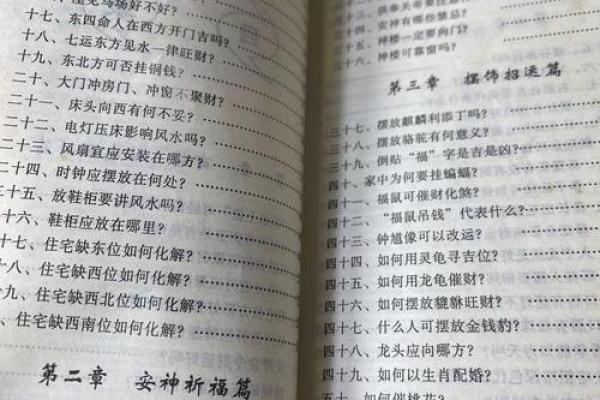 十七、东四命人在西方开门吉吗?
十八、七运东方见水一律旺财?
十九、东北方可否挂铜钱?
二十、大门冲房门、冲窗不聚财?
二十一、床头向西有何不妥?
二十二、电灯压床影响风水吗?
二十三、风扇宜应安装在哪方?
二十四、时钟应摆放在何处?
二十五、放鞋柜要讲风水吗?
十六、鞋柜应放在哪里?
十七、住宅缺东位如何化解?
十八、住宅缺西位如何化解?
十九、住宅缺西北位如何化解?
住宅缺西南位如何化解?
第二章 安神祈福篇
三十四、安神有哪些禁忌?
三十五、神楼一定要向门?
三十六、神楼可靠窗吗?
第三章 摆饰招运篇
三十七、摆放麒麟利添丁吗?
三十八、摆放骆驼有何意义?
三十九、倒贴“福”字是吉是凶?
四十、家中为何要挂蝙蝠?
四十一、福鼠可催财化煞?
四十二、“福鼠吊钱”代表什么?
四十三、钟馗像可以改运?
四十四、如何用灵龟寻吉位?
四十五、如何用龙龟催财?
四十六、如何摆放貔貅旺财?
四十七、什么人可摆放金钱豹?
四十八、龙头应向哪方?
四十九、如何以生肖配婚?
五十、如何催桃花?